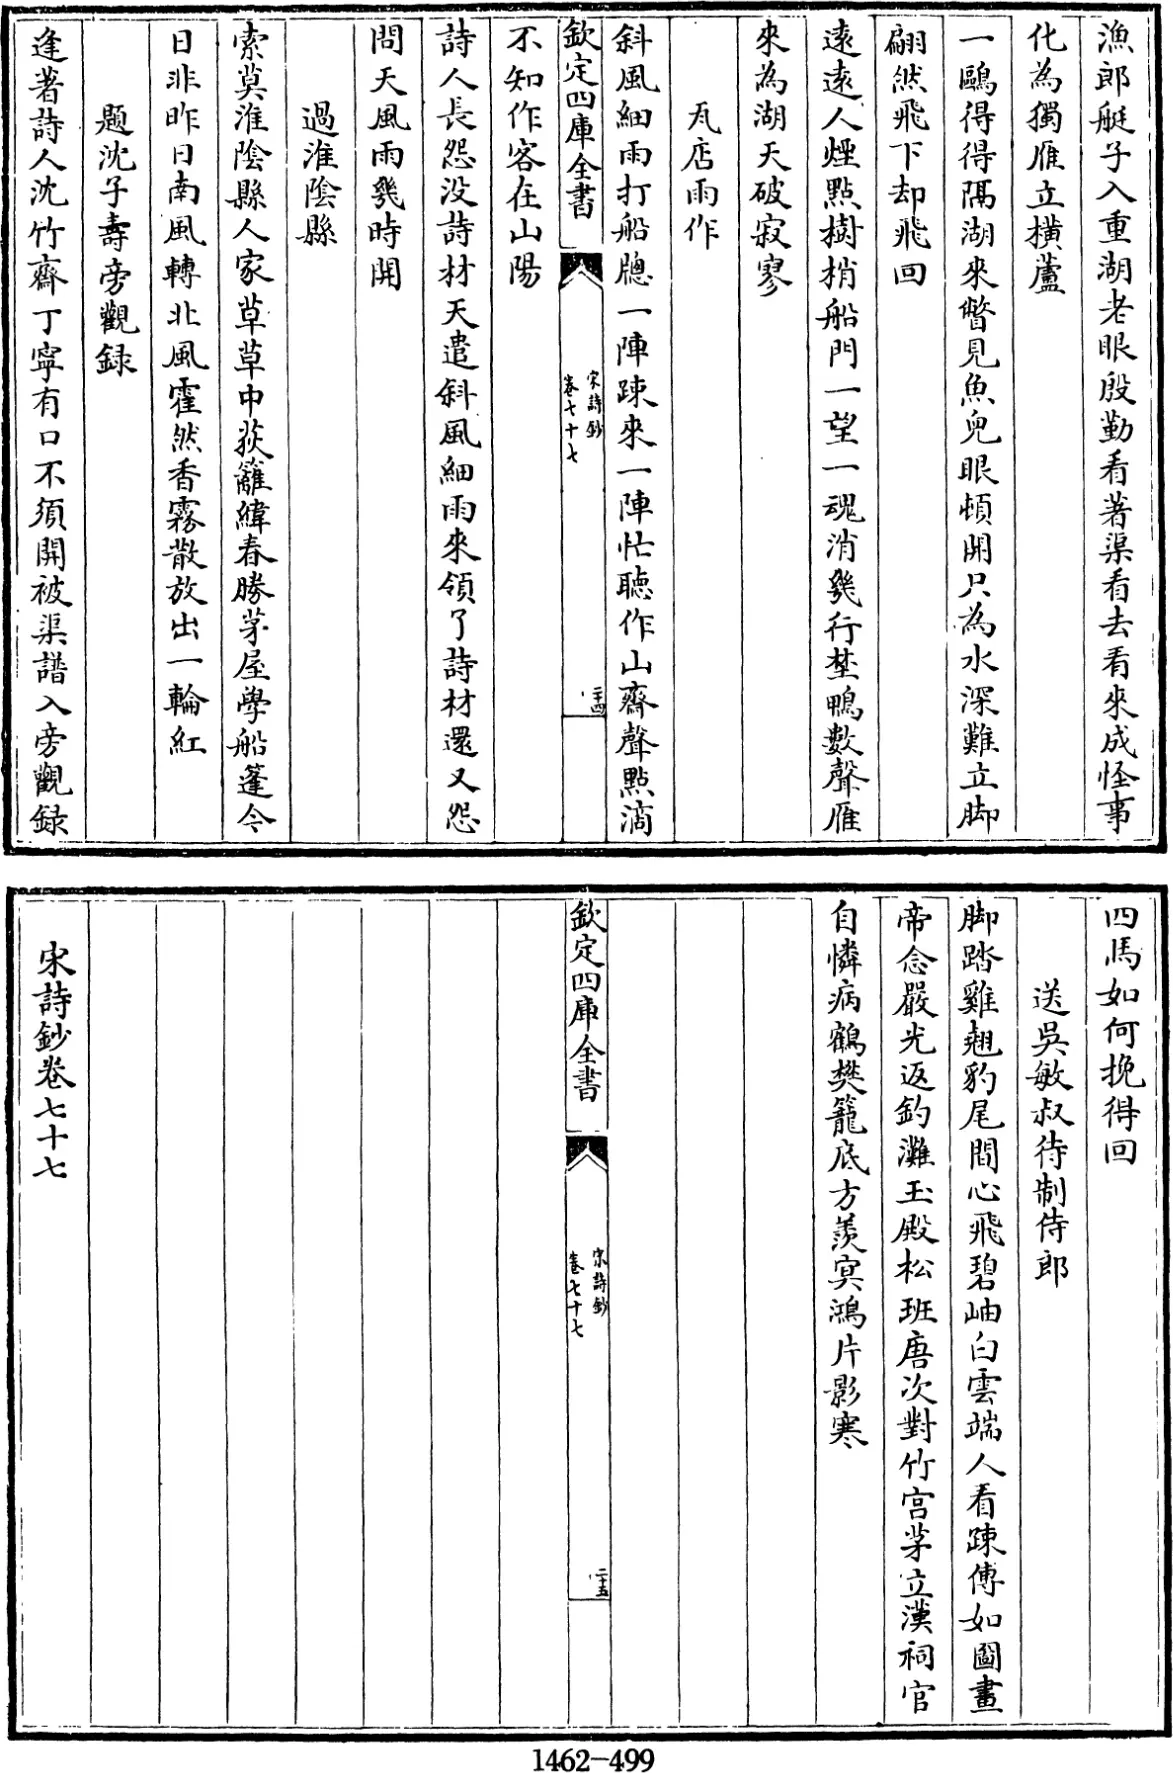 漁郎艇子入重湖老眼殷勤看著渠看去看來成怪事
化為獨雁立橫蘆
一鷗得得隔湖來瞥見魚兒眼頓開只為水深難立脚
翩然飛下却飛回
遠遠人煙點樹梢船門一望一魂消幾行埜鴨數聲雁
來為湖天破寂寥
瓦店雨作
斜風細雨打船牕一陣踈來一陣忙聽作山齋聲點滴
欽定四庫全書
宋詩鈔
卷七十七
二十四
不知作客在山陽
詩人長怨没詩材天遣斜風細雨來領了詩材還又怨
問天風雨幾時開
過淮陰縣
索莫淮陰縣人家草草中荻籬緯春勝茅屋學船篷今
日非昨日南風轉北風霍然香霧散放出一輪紅
題沈子壽旁觀録
逢著詩人沈竹齋丁寧有口不須開被渠譜入旁觀録
四馬如何挽得回
送吳敏叔待制侍郎
脚踏雞翹豹尾間心飛碧岫白雲端人看踈傅如圖畫
帝念嚴光返釣灘玉殿松班唐次對竹宫茅立漢祠官
自憐病鶴樊籠底方羨㝠鴻片影寒
欽定四庫全書
宋詩鈔
卷七十七
二十五
宋詩鈔卷七十七
1462-499